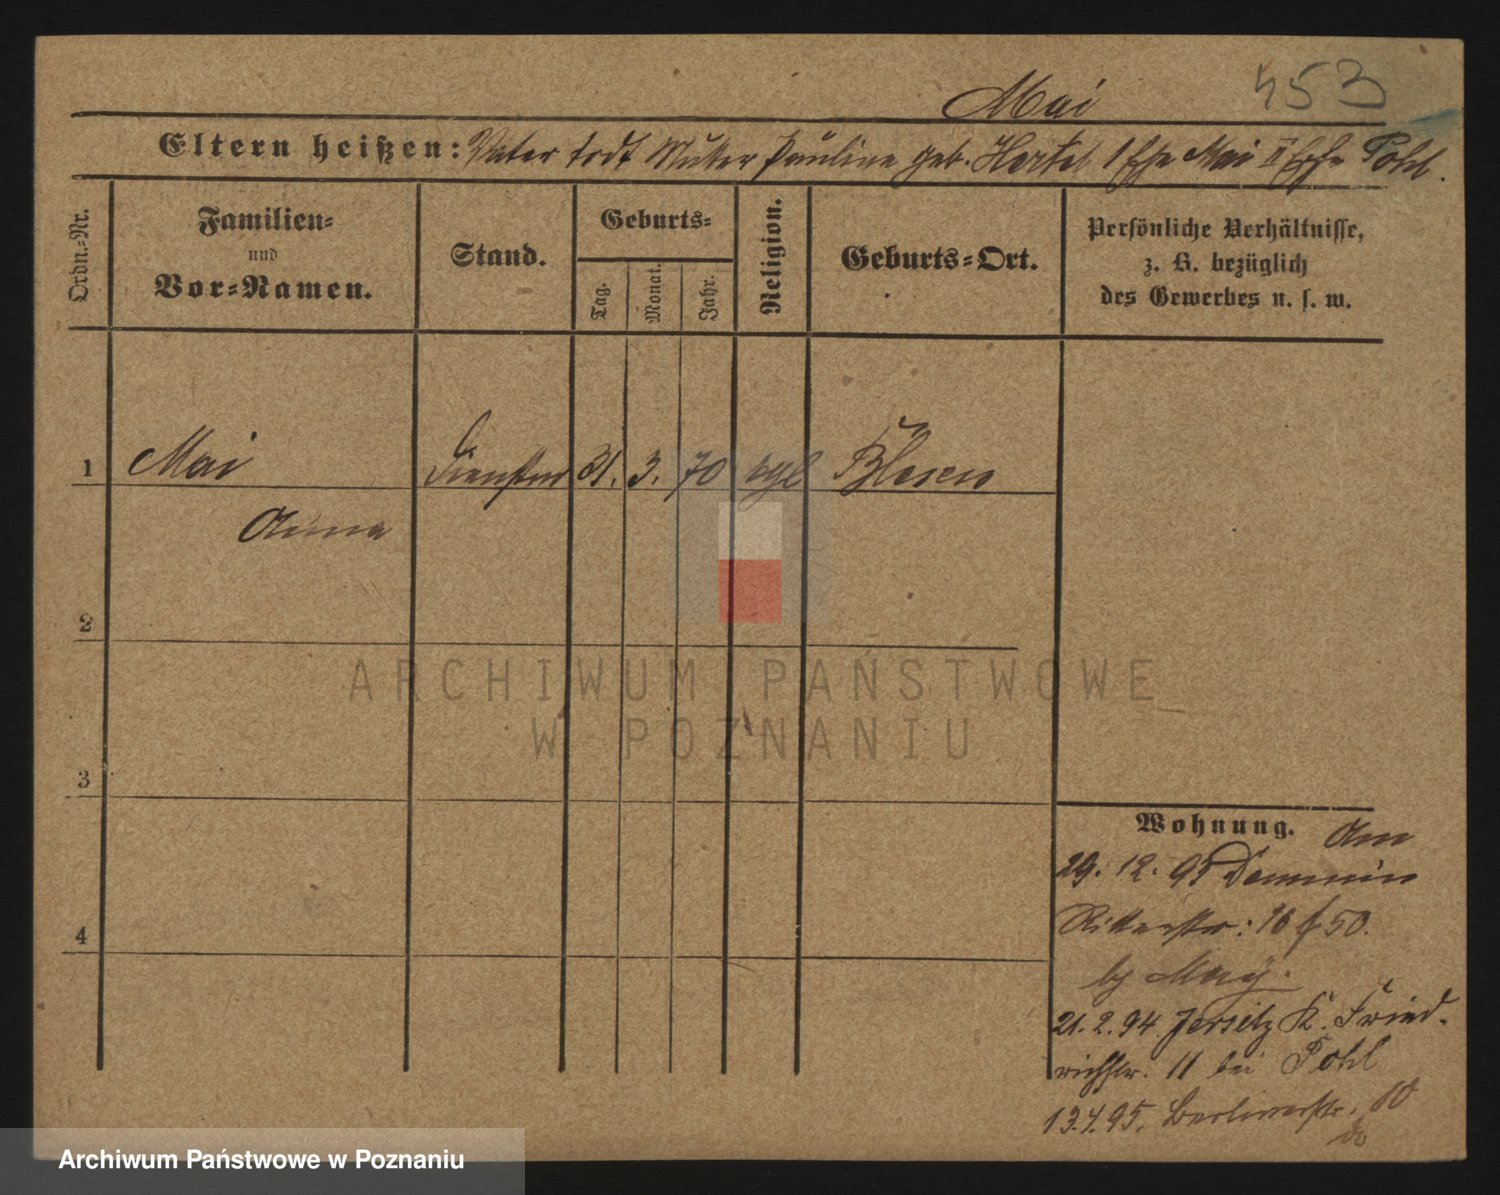 Mai 453
Eltern heißen: Vater todt Mutter Pauline geb. Hertel 1 Ehe Mai II Ehe Pohl.
Ordn.-Nr.
Familien-
und
Vor-Namen.
Stand.
Geburts-
Tag.
Monat.
Jahr.
Religion.
Geburts-Ort.
Persönliche Verhältnisse,
z. B. bezüglich
des Gewerbes u. s. w.
1 Mai 31. 3. 70 Blesen
Anna
2
3
4
Wohnung. Am
29. 12. Demmin
Ritterstr: 16 50.
21. 2. 94. Jersitz K. Fried-
richstr. 11 bei Pohl
13.4.95. Berlinerstr. 10
ARCHIWUM PAŃSTWOWE
W POZNANIU
Archiwum Państwowe w Poznaniu